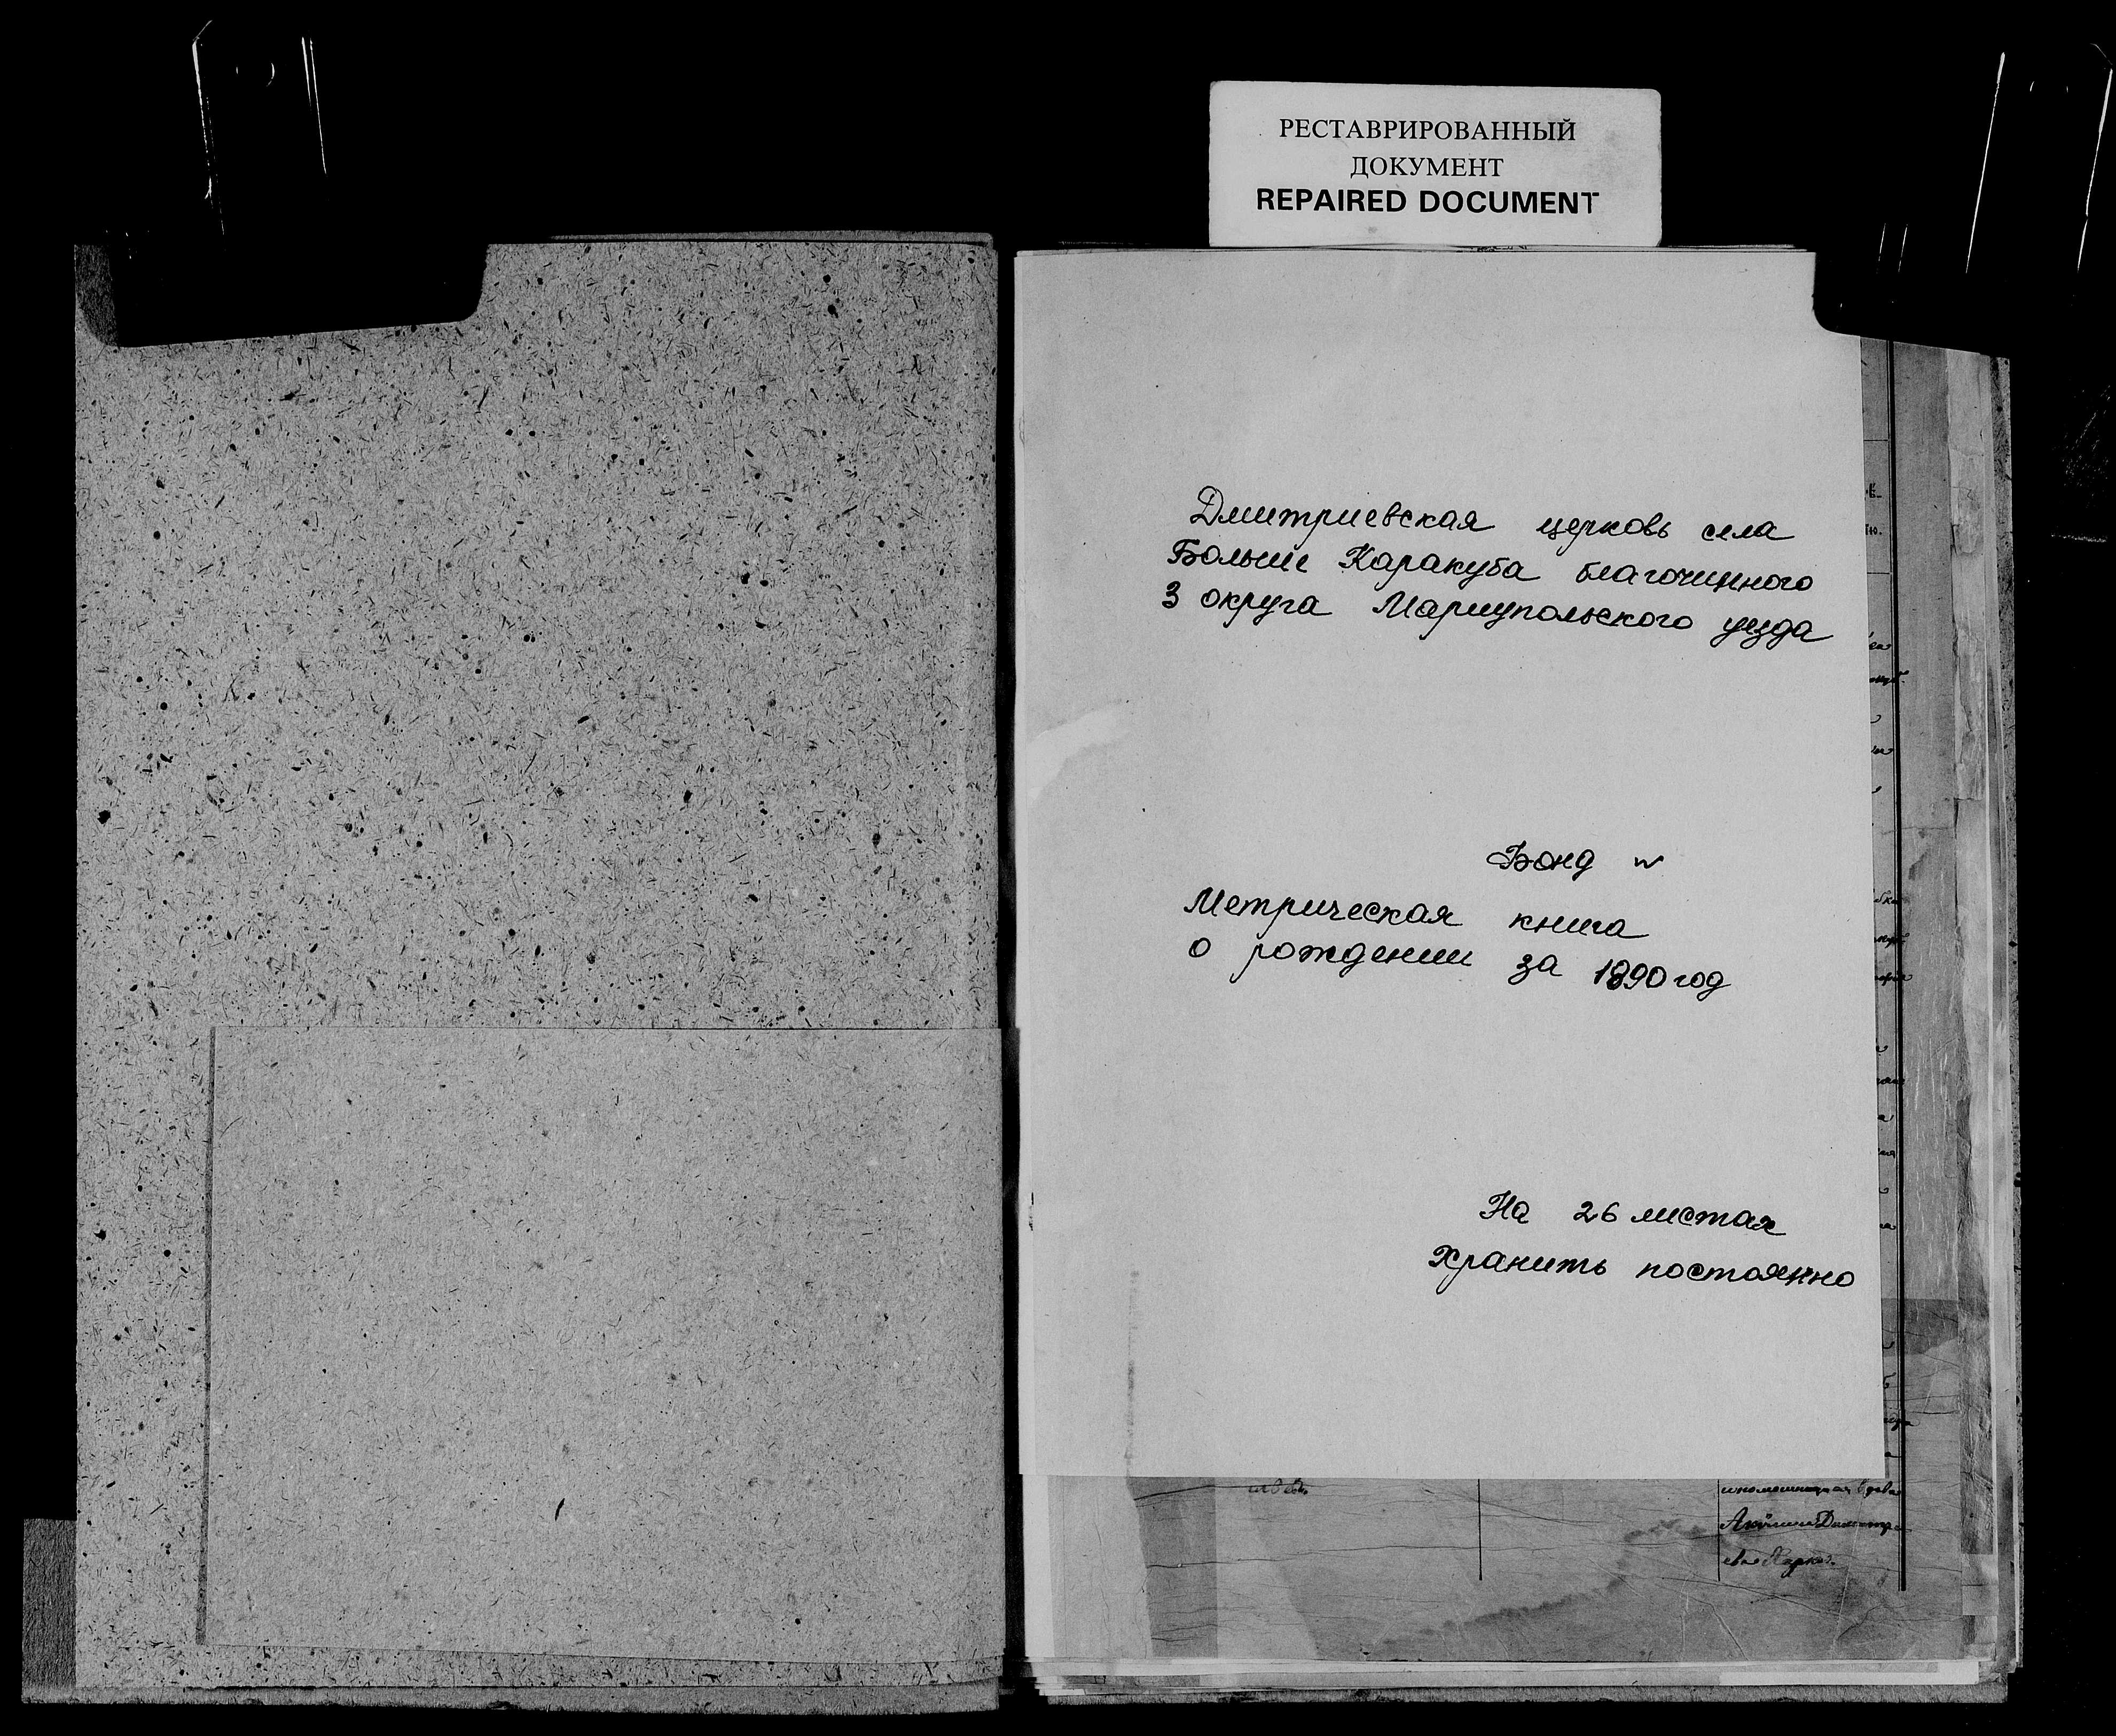 РЕСТАВРИРОВАННЫЙ
ДОКУМЕНТ
REPAIRED DOCUMENT
Дмитриевская церковь села
Больше Каракуба благочинного
3 округа Мариупольского уезда
Фонд №
Метрическая книга
о рождении за 1890 год
На 26 листах
Хранить постоянно